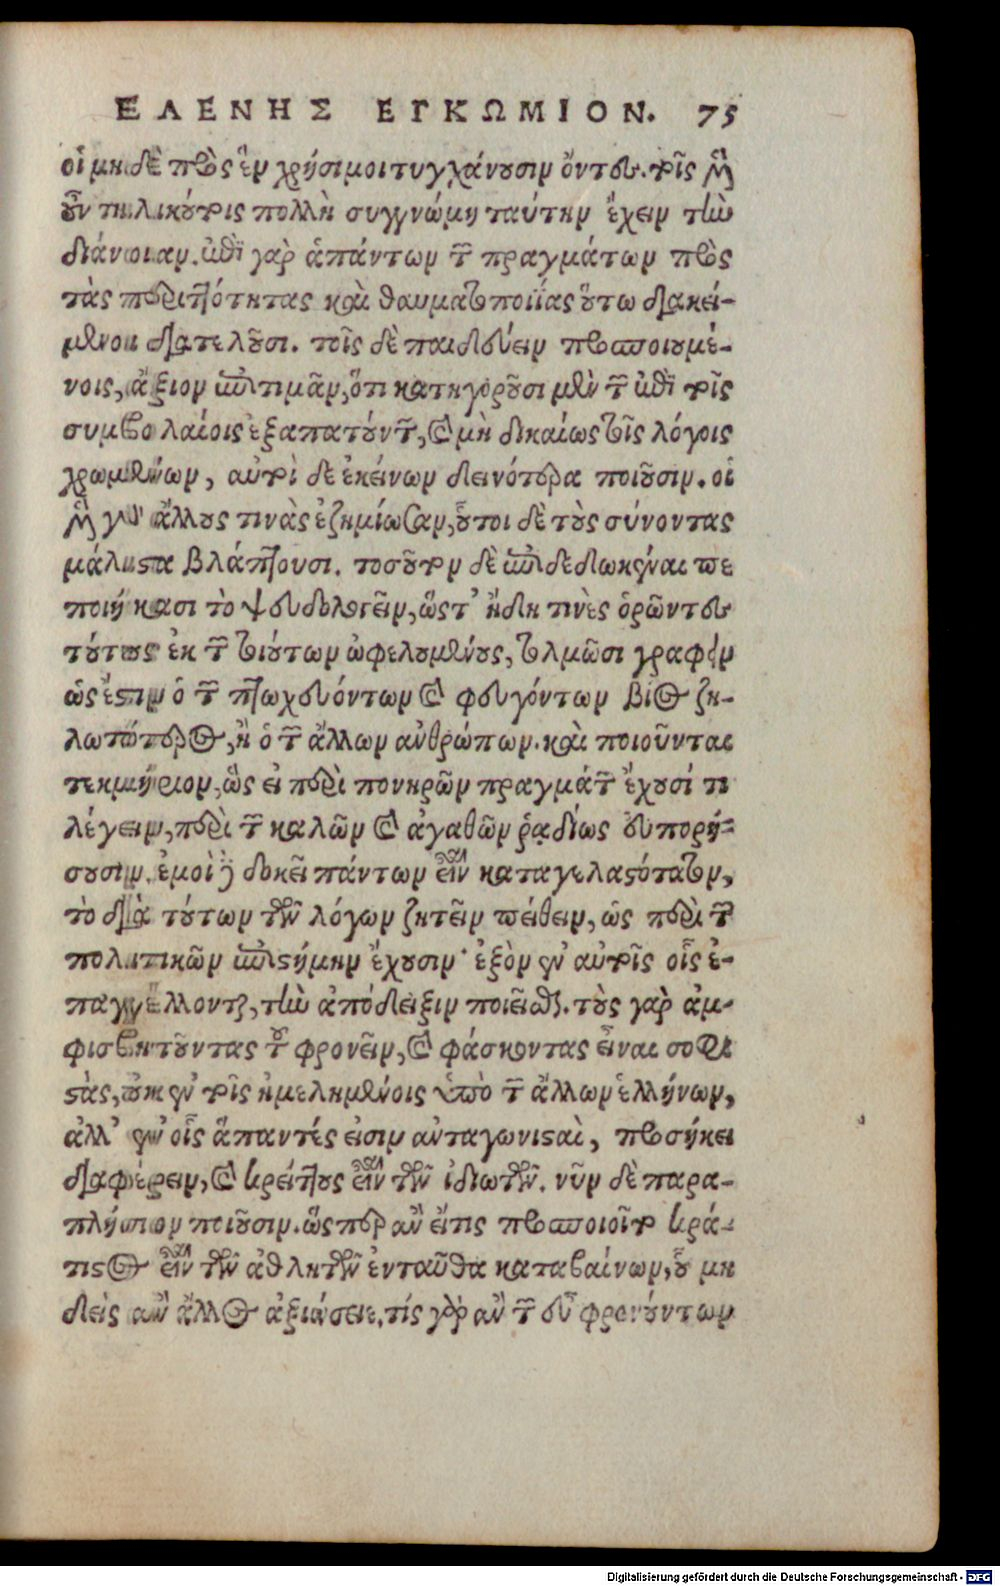 ΕΛΕΝΗΣ ΕΓΚΩΜΙΟΝ. 75
οἱ μηδὲ πρὸς ἓν χρήσιμοι τυγχάνουσιν ὄντες. τοῖς μὲν
οὖν τηλικούτοις πολλὴ συγγνώμη ταύτην ἔχειν τὴν
διάνοιαν. ἐπὶ γὰρ ἁπάντων τῶν πραγμάτων πρὸς
τὰς περιττότητας καὶ θαυματοποιΐας οὕτω διακεί-
μενοι διατελοῦσι. τοῖς δὲ παιδεύειν προσποιουμέ-
νοις, ἄξιον ἐπιτιμᾶν, ὅτι κατηγοροῦσι μὲν τῶν ἐπὶ τοῖς
συμβολαίοις ἐξαπατούντων, καὶ μὴ δικαίως τοῖς λόγοις
χρωμένων, αὐτοὶ δὲ ἐκείνων δεινότερα ποιοῦσιν. οἱ
μὲν γὰρ ἄλλους τινὰς ἐζημίωσαν, οὗτοι δὲ τοὺς σύνοντας
μάλιστα βλάπτουσι. τοσοῦτον δὲ ἐπιδεδωκέναι πε
ποιήκασι τὸ ψευδολογεῖν, ὥστ' ἤδη τινὲς ὁρῶντες
τούτους ἐκ τῶν τοιούτων ὠφελουμένους, τολμῶσι γράφειν
ὡς ἔστιν ὁ τῶν πτωχευόντων καὶ φευγόντων βίος ζη-
λωτότερος, ἢ ὁ τῶν ἄλλων ἀνθρώπων. καὶ ποιοῦνται
τεκμήριον, ὡς εἰ περὶ πονηρῶν πραγμάτων ἔχουσί τι
λέγειν, περὶ τῶν καλῶν καὶ ἀγαθῶν ῥᾳδίως εὐπορή-
σουσιν. ἐμοὶ δὲ δοκεῖ πάντων εἶναι καταγελαστότατον,
τὸ διὰ τούτων τῶν λόγων ζητεῖν πείθειν, ὡς περὶ τῶν
πολιτικῶν ἐπιστήμην ἔχουσιν· ἐξὸν ἐν αὐτοῖς οἷς ἐ-
παγγέλλονται, τὴν ἀπόδειξιν ποιεῖσθαι. τοὺς γὰρ ἀμ-
φισβητοῦντας τοῦ φρονεῖν, καὶ φάσκοντας εἶναι σοφι
στὰς, οὐκ ἐν τοῖς ἠμελημένοις ὑπὸ τῶν ἄλλων ἑλλήνων,
ἀλλ' ἐν οἷς ἅπαντές εἰσιν ἀνταγωνισταὶ, προσήκει
διαφέρειν, καὶ κρείττους εἶναι τῶν ἰδιωτῶν. νῦν δὲ παρα-
πλήσιον ποιοῦσιν. ὥσπερ ἂν εἴ τις προσποιοῖτο κρά-
τιστος εἶναι τῶν ἀθλητῶν ἐνταῦθα καταβαίνων, οὗ μη
δεὶς ἂν ἄλλος ἀξιώσειε. τίς γὰρ ἂν τῶν εὖ φρονούντων
Digitalisierung gefördert durch die Deutsche Forschungsgemeinschaft - DFG